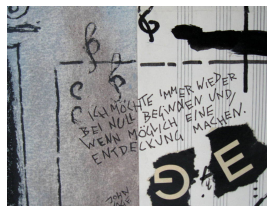 ICH MÖCHTE IMMER WIEDER
BEI NULL BEGINNEN UND,
WENN MÖGLICH EINE
ENTDECKUNG MACHEN.
JOHN
CAGE
G E